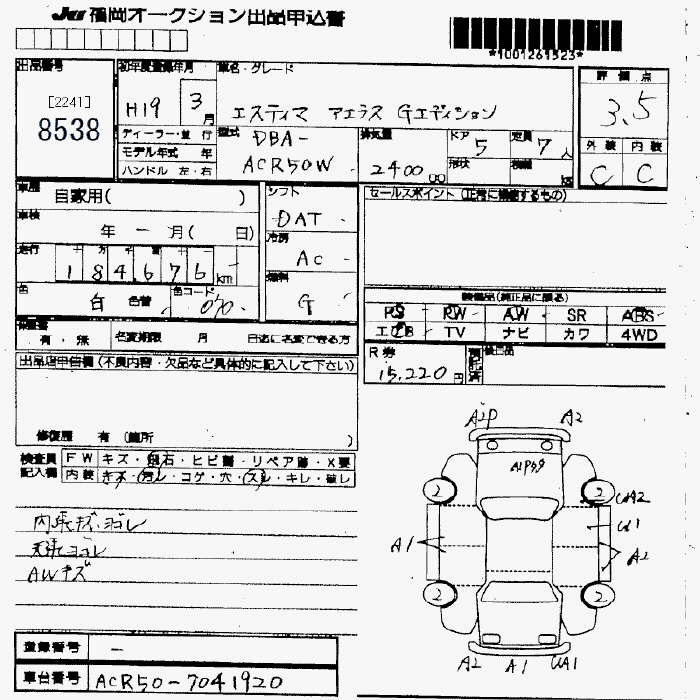 JU 福岡オークション出品申込書
*1001261523*
出品番号 初年度登録年月 車名・グレード 評価点
[2241]
8538
H19 3月 エスティマ アエラス Gエディション 3.5
ディーラー・並行 型式 DBA- 排気量 ドア 5 定員 7人 外装 内装
モデル年式 年
ハンドル 左・右 ACR50W 2400cc 形状 積載 kg C C
車歴 自家用( ) シフト セールスポイント(正常に機能するもの)
DAT
車検 年 - 月( 日) 冷房
AC
走行 十 万 千 百 十
184676km 燃料
色 白 色替 色コード 070 G
装備品(純正品に限る)
PS PW AW SR ABS
エアB TV ナビ カワ 4WD
保証書 有・無 名変期限 月 日迄に名変できる方
R券 15,220円 預託済 後日品
出品店申告欄(不良内容・欠品など具体的に記入して下さい)
修復歴 有 (箇所 )
検査員 FW キズ・飛石・ヒビ割・リペア跡・X要
記入欄 内装 キズ・汚レ・コゲ・穴・スレ・キレ・破レ
内張キズ・ヨゴレ
天張ヨゴレ
AWキズ
A2P A2
2 2
A1 A2
2 2
A2 A1
登録番号 -
車台番号 ACR50-7041920